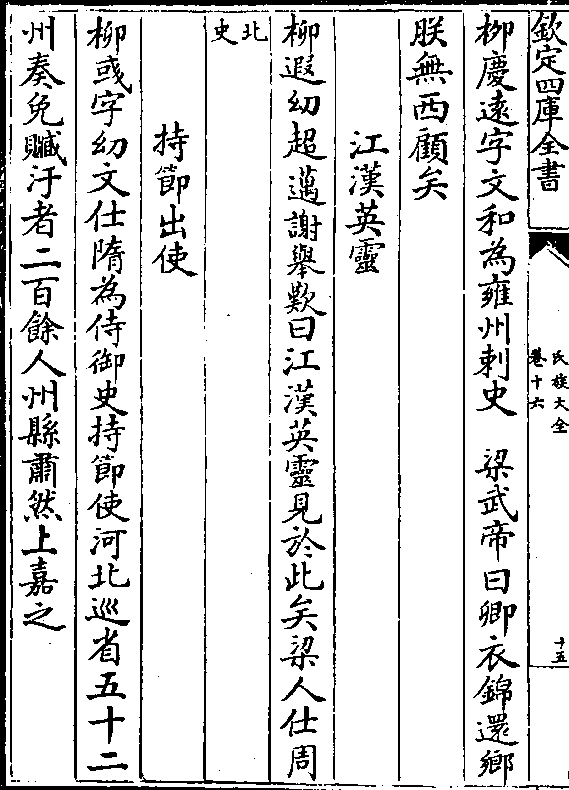 欽定四庫全書
氏族大全
卷十六
十五
柳慶遠字文和為雍州刺史　梁武帝曰卿衣錦還鄉
朕無西顧矣
江漢英靈
柳遐幼超邁謝舉歎曰江漢英靈見於此矣梁人仕周
北史
持節出使
柳彧字幼文仕隋為侍御史持節使河北巡省五十二
州奏免贓汙者二百餘人州縣肅然上嘉之